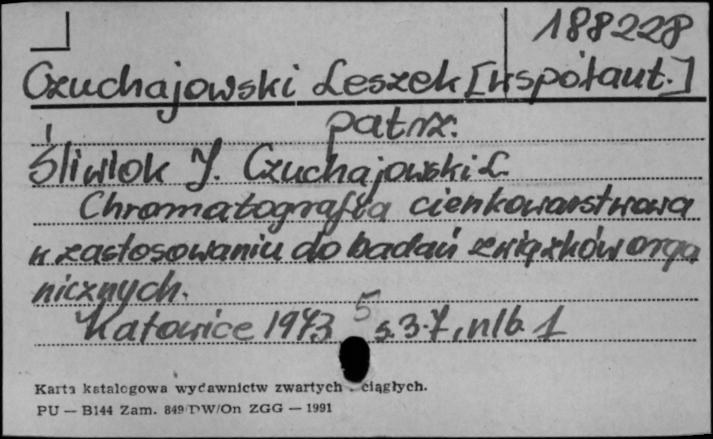 188228
Czuchajowski Leszek [współaut.]
patrz:
Śliwiok J. Czuchajowski L.
Chromatografia cienkowarstwowa
w zastosowaniu do badań związków orga
nicznych.
Katowice 1973 5 s. 3-7, nlb. 1
Karta katalogowa wydawnictw zwartych i ciągłych.
PU — B144 Zam. 849/DW/On ZGG — 1991